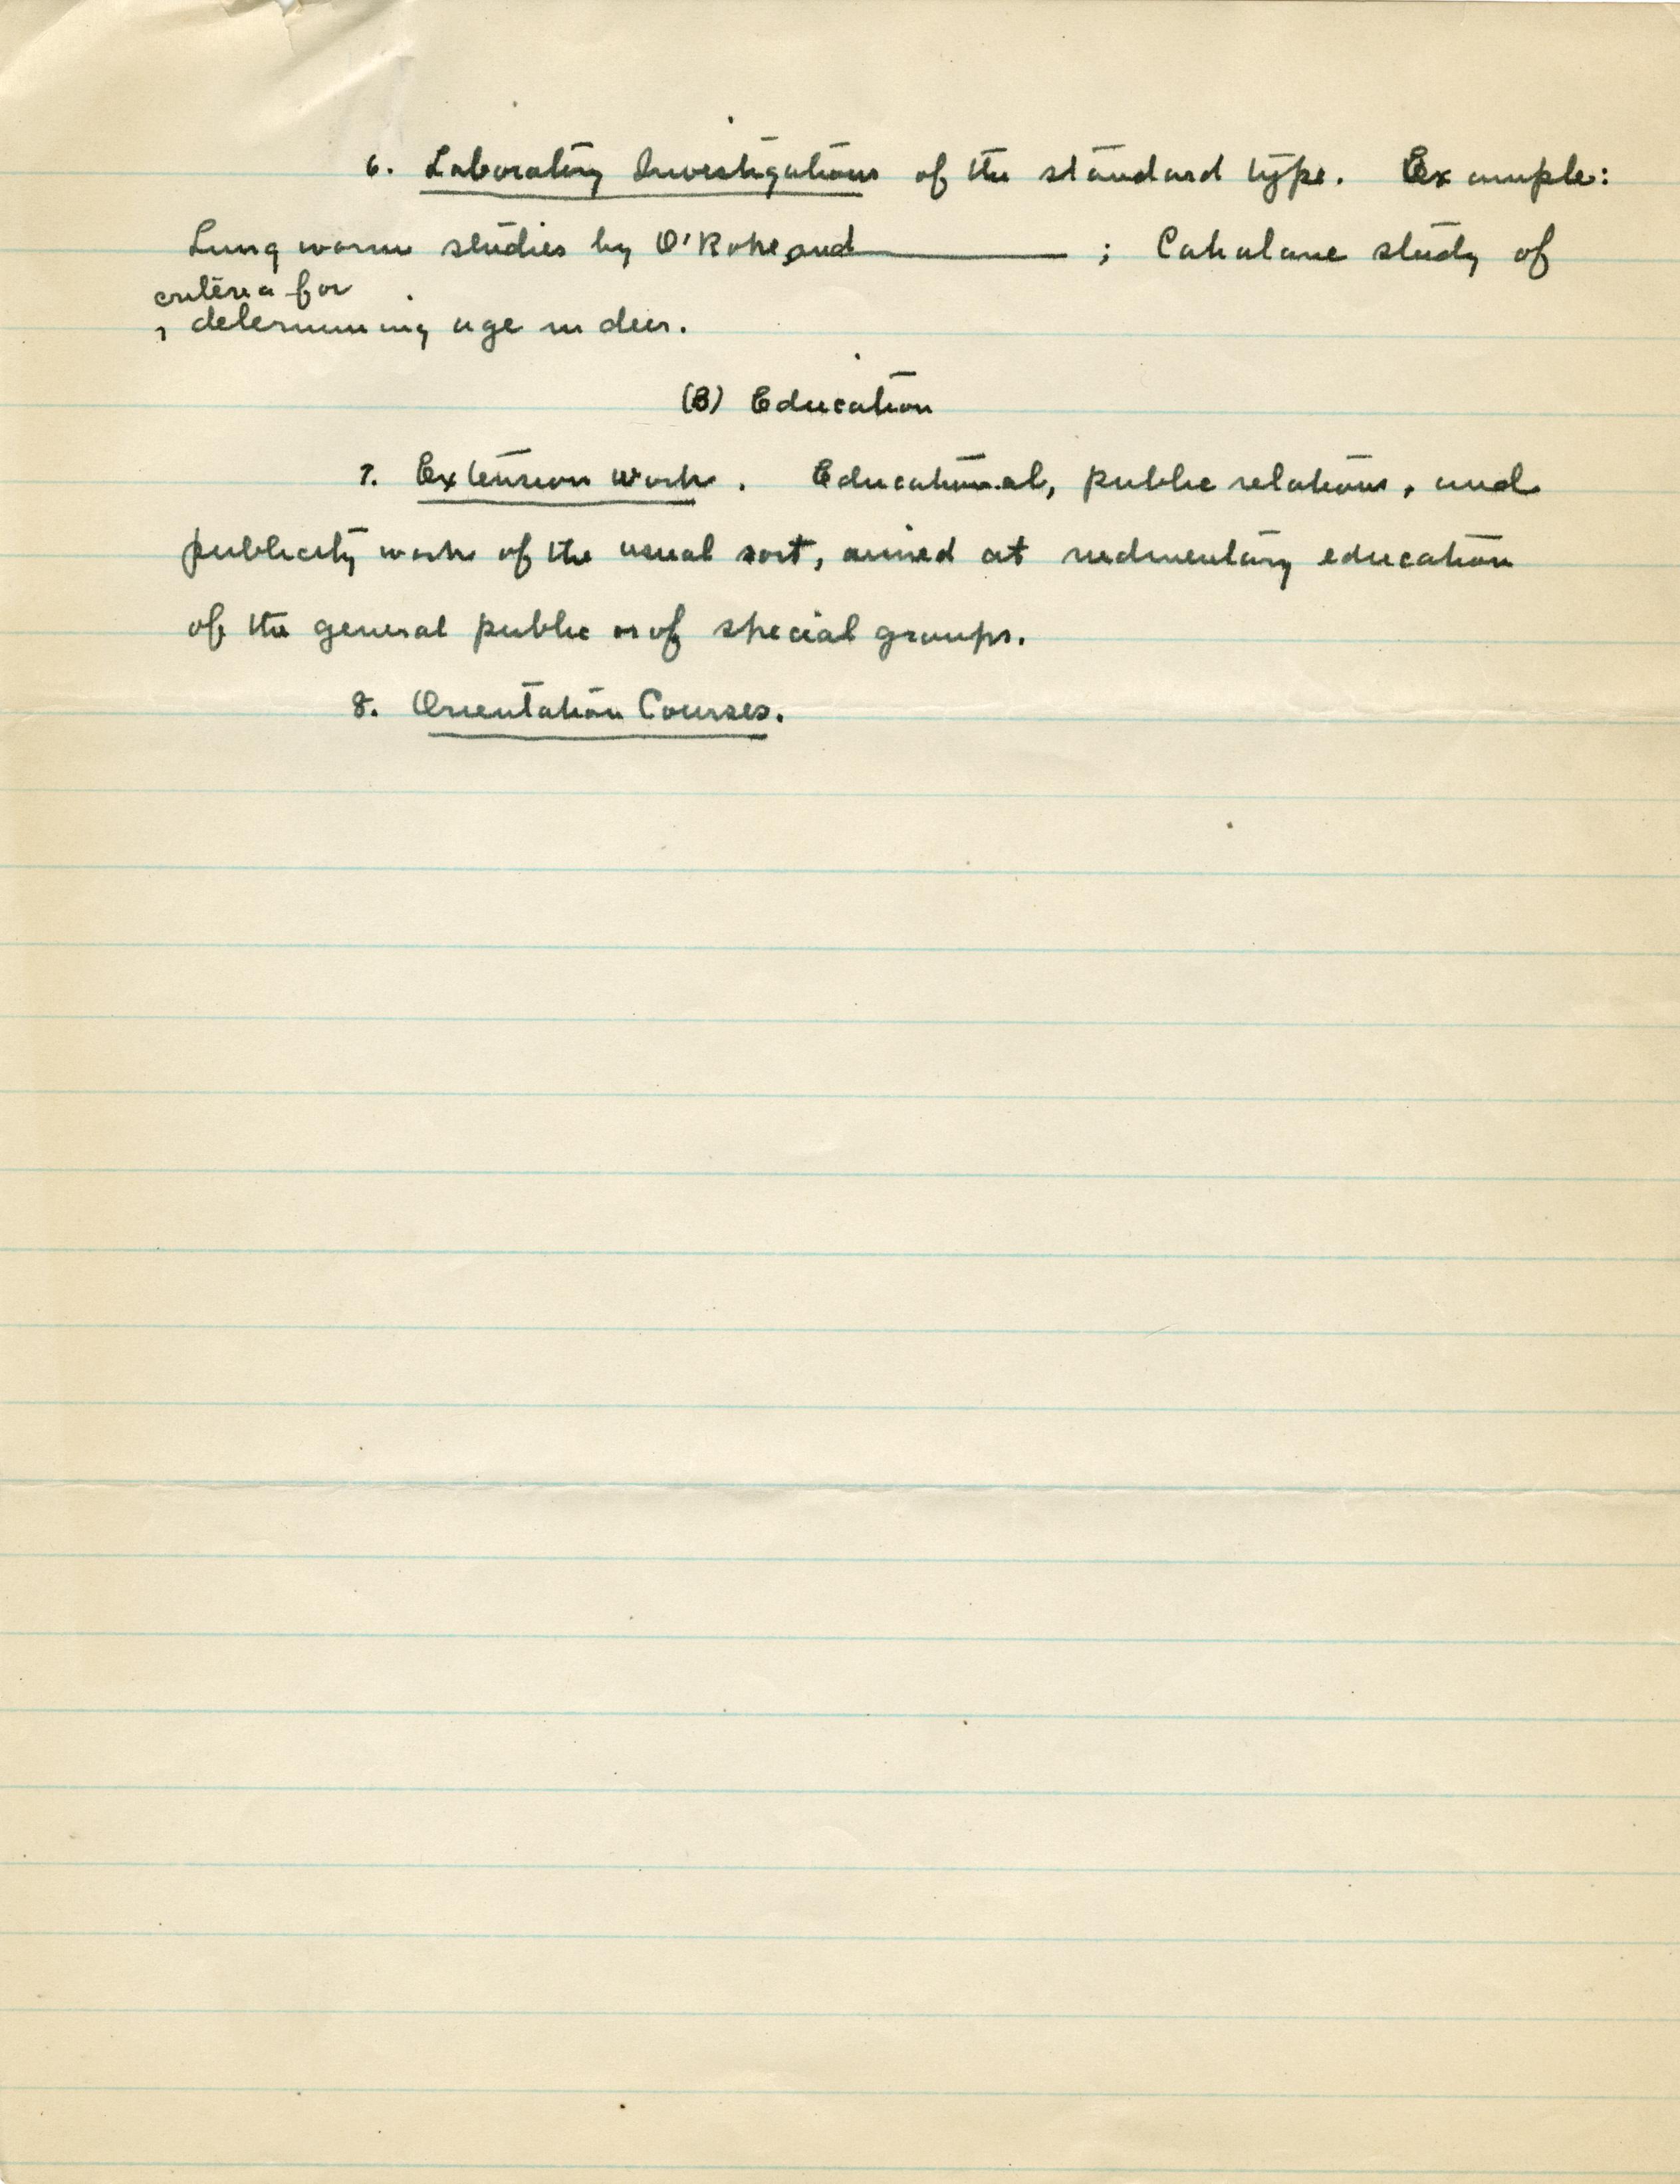 6. Laboratory Investigations of the standard type. Example:
Lung worm studies by O'Roke and ________ ; Cahalane study of
criteria for
, determining age in deer.
(B) Education
7. Extension Work. Educational, public relations, and
publicity work of the usual sort, aimed at rudimentary education
of the general public or of special groups.
8. Orientation Courses.